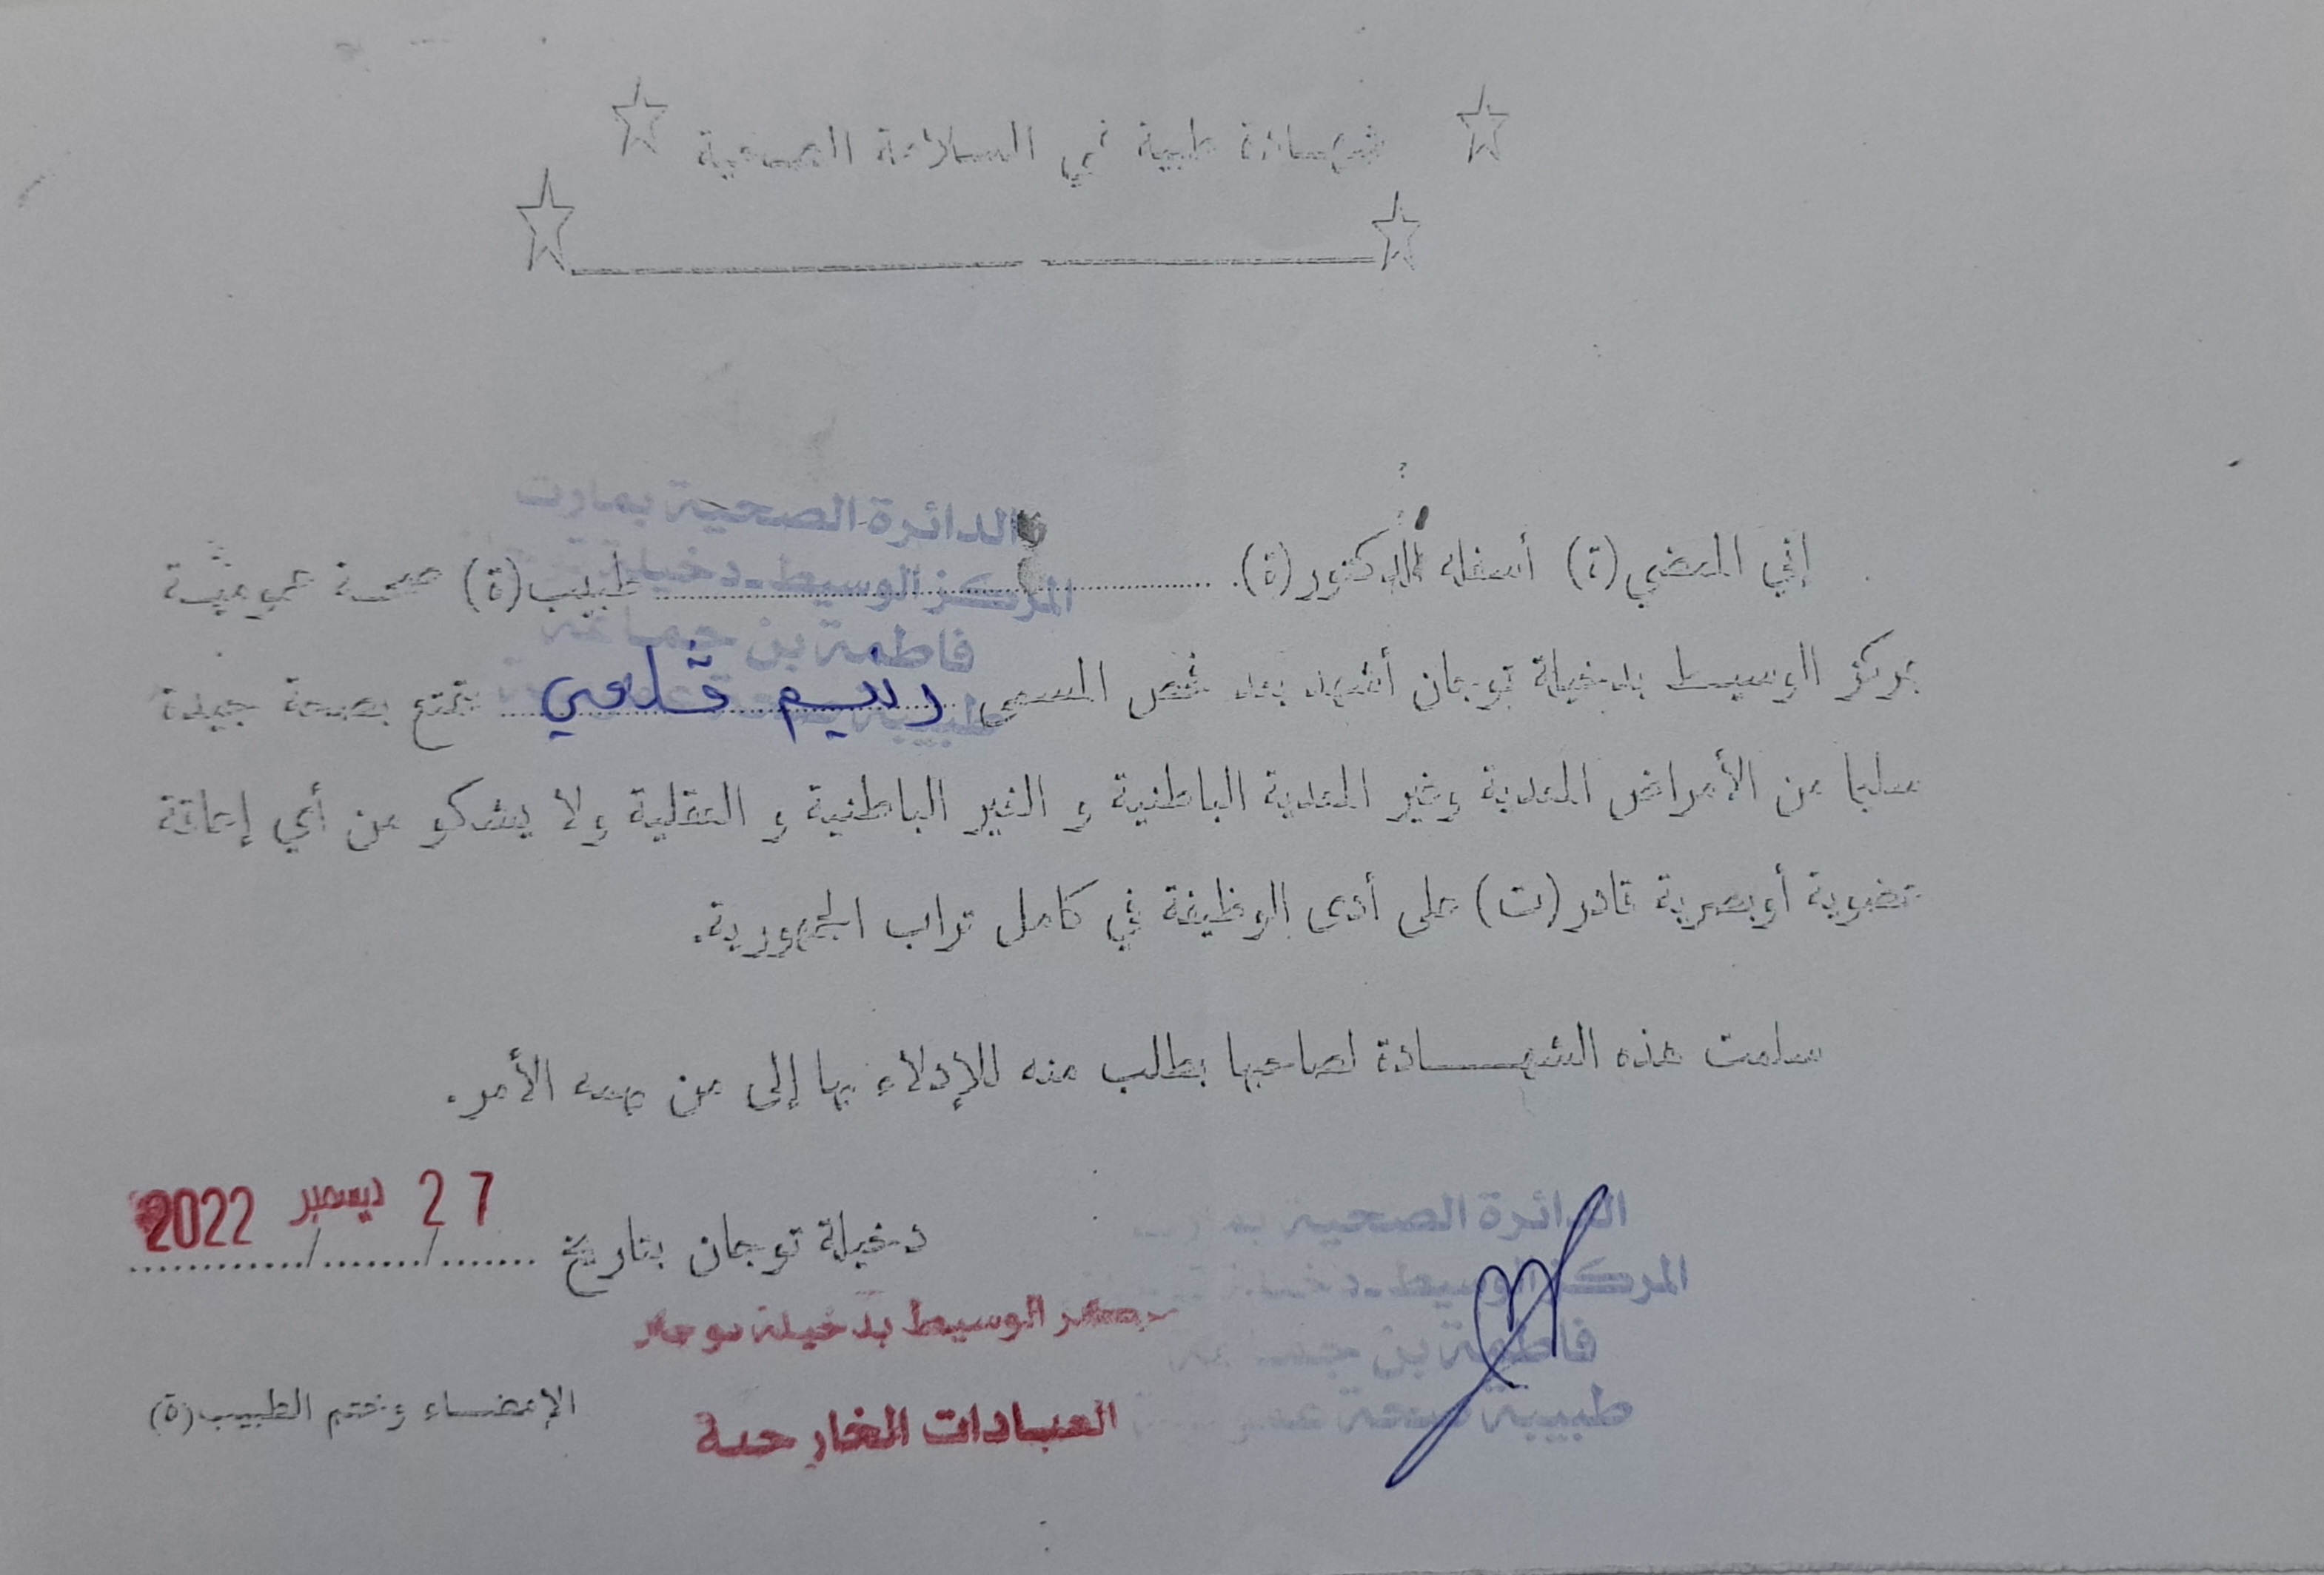 شهادة طبية في السلامة الصحية
الدائرة الصحية بمارث
المركز الوسيط - دخيلة
فاطمة بن جماعة
طبيبة
إني الممضي (ة) أسفله الدكتور (ة) طبيب (ة) صحة عمومية
بمركز الوسيط بدخيلة توجان أشهد بعد فحص المسمى قلعي يتمتع بصحة جيدة
سليما من الأمراض المعدية وغير المعدية الباطنية و الغير الباطنية و العقلية ولا يشكو من أي إعاقة
عضوية أوبصرية قادر (ت) على أدى الوظيفة في كامل تراب الجمهورية.
سلمت هذه الشهـــادة لصاحبها بطلب منه للإدلاء بها إلى من يهمه الأمر.
دخيلة توجان بتاريخ 27 ديسمبر 2022
الدائرة الصحية
المركز الوسيط - دخيلة
فاطمة بن جماعة
طبيبة صحة
الوسيط بدخيلة توجان
العيادات الخارجية
الإمضـاء وختم الطبيب (ة)